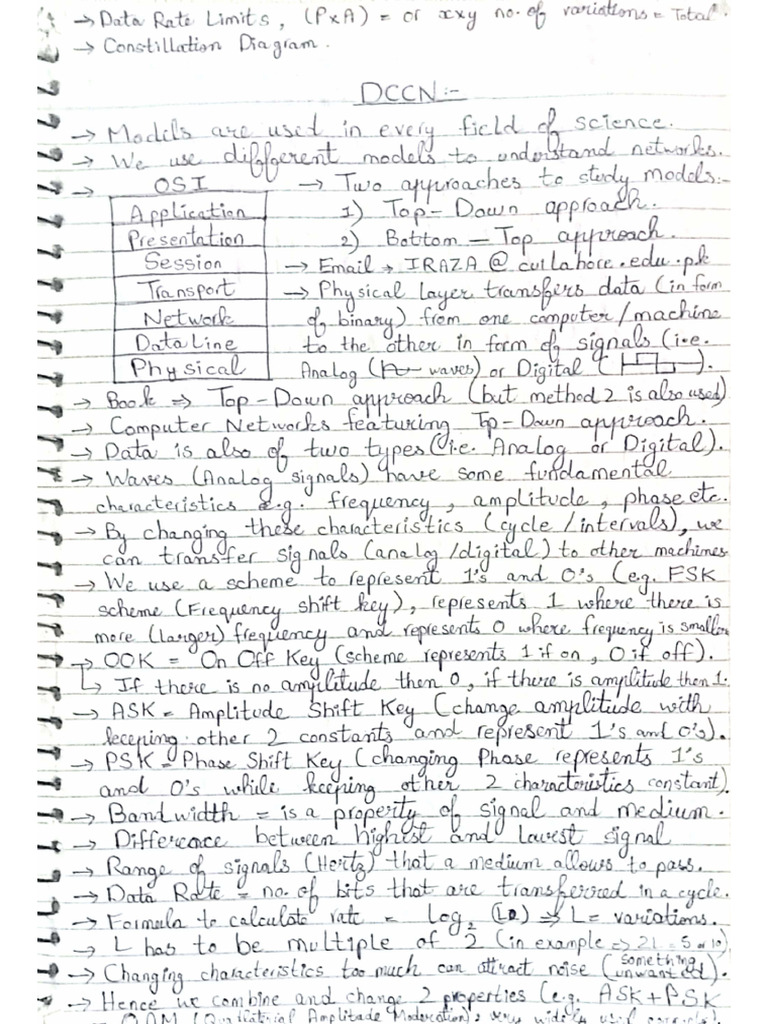 → Data Rate Limits, (P×A) = or x×y no. of variations = Total.
→ Constillation Diagram.
DCCN:-
→ Models are used in every field of science.
→ We use different models to understand networks.
→ OSI → Two approaches to study models:-
Application 1) Top-Down approach.
Presentation 2) Bottom-Top approach.
Session → Email → IRAZA @ cuilahore.edu.pk
Transport → Physical layer transfers data (in form
Network of binary) from one computer/machine
Data Line to the other in form of signals (i.e.
Physical Analog (waves) or Digital ( ).
→ Book ⇒ Top-Down approach (but method 2 is also used)
→ Computer Networks featuring Top-Down approach.
→ Data is also of two types (i.e. Analog or Digital).
→ Waves (Analog signals) have some fundamental
characteristics e.g. frequency, amplitude, phase etc.
→ By changing these characteristics (cycle/intervals), we
can transfer signals (analog/digital) to other machines
→ We use a scheme to represent 1's and 0's (e.g. FSK
scheme (Frequency shift key), represents 1 where there is
more (larger) frequency and represents 0 where frequency is smaller
→ OOK = On Off Key (scheme represents 1 if on, 0 if off).
↳ If there is no amplitude then 0, if there is amplitude then 1.
→ ASK = Amplitude Shift Key (change amplitude with
keeping other 2 constants and represent 1's and 0's).
→ PSK = Phase Shift Key (changing Phase represents 1's
and 0's while keeping other 2 characteristics constant).
→ Bandwidth = is a property of signal and medium.
→ Difference between highest and lowest signal
→ Range of signals (Hertz) that a medium allows to pass.
→ Data Rate = no. of bits that are transferred in a cycle.
→ Formula to calculate rate = Log₂ (L) ⇒ L = variations.
→ L has to be multiple of 2 (in example ⇒ 21 = 5 or 10)
→ Changing characteristics too much can attract noise (something unwanted).
→ Hence we combine and change 2 properties (e.g. ASK+PSK
= QAM Amplitude